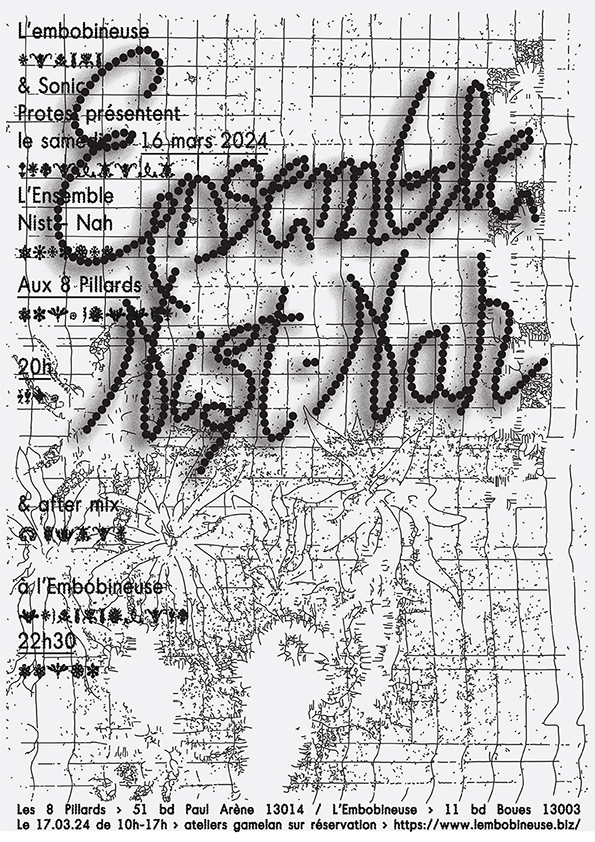 L'embobineuse
& Sonic
Protest présentent
le samedi 16 mars 2024
L'Ensemble
Nist - Nah
Aux 8 Pillards
20h
& after mix
à l'Embobineuse
22h30
Ensemble
Nist-Nah
Les 8 Pillards > 51 bd Paul Arène 13014 / L'Embobineuse > 11 bd Boues 13003
Le 17.03.24 de 10h-17h > ateliers gamelan sur réservation > https://www.lembobineuse.biz/